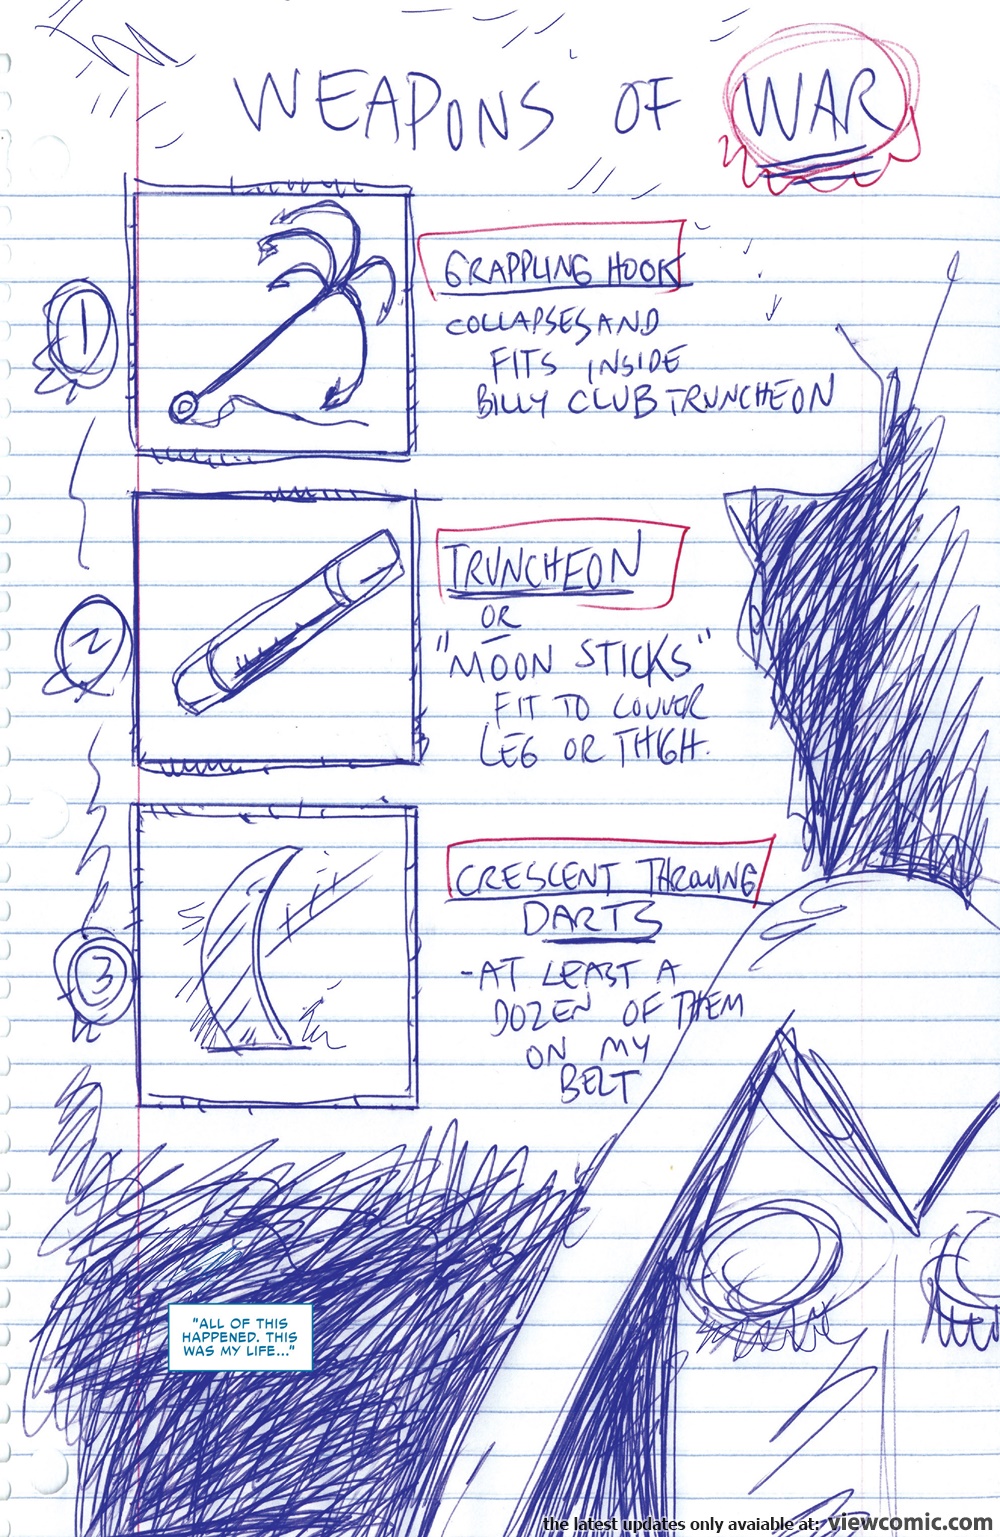 WEAPONS OF WAR
1
GRAPPLING HOOK
COLLAPSES AND
FITS INSIDE
BILLY CLUB TRUNCHEON
2
TRUNCHEON
OR
"MOON STICKS"
FIT TO COVVER
LEG OR THIGH.
3
CRESCENT THROWING
DARTS
-AT LEAST A
DOZEN OF THEM
ON MY
BELT
"ALL OF THIS
HAPPENED. THIS
WAS MY LIFE..."
the latest updates only avaiable at: viewcomic.com